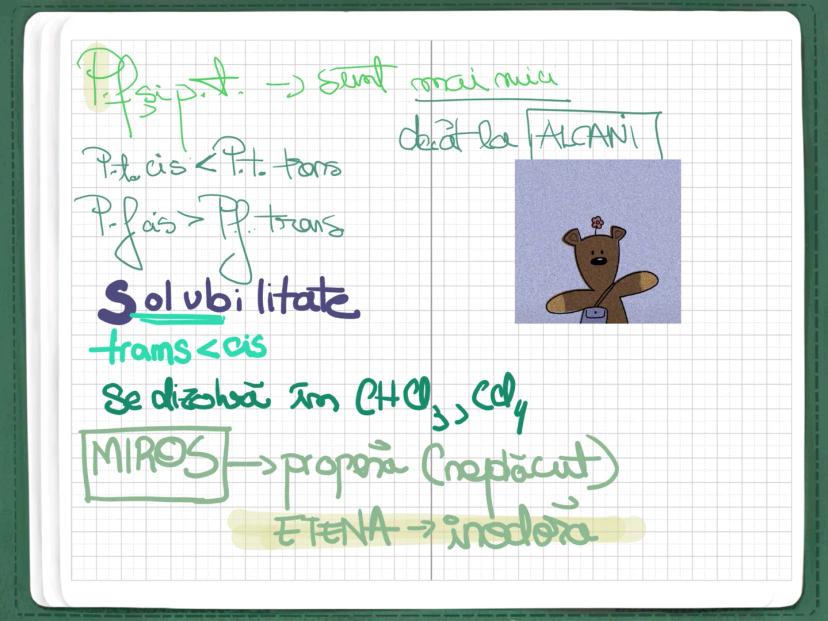 P.f și p.t. → sunt mai mici
decât la ALCANI
P.t. cis < P.t. trans
P.f cis > P.f. trans
Solubilitate
trans < cis
Se dizolvă în CHCl3, CCl4
MIROS → propena (neplăcut)
ETENA → inodoră